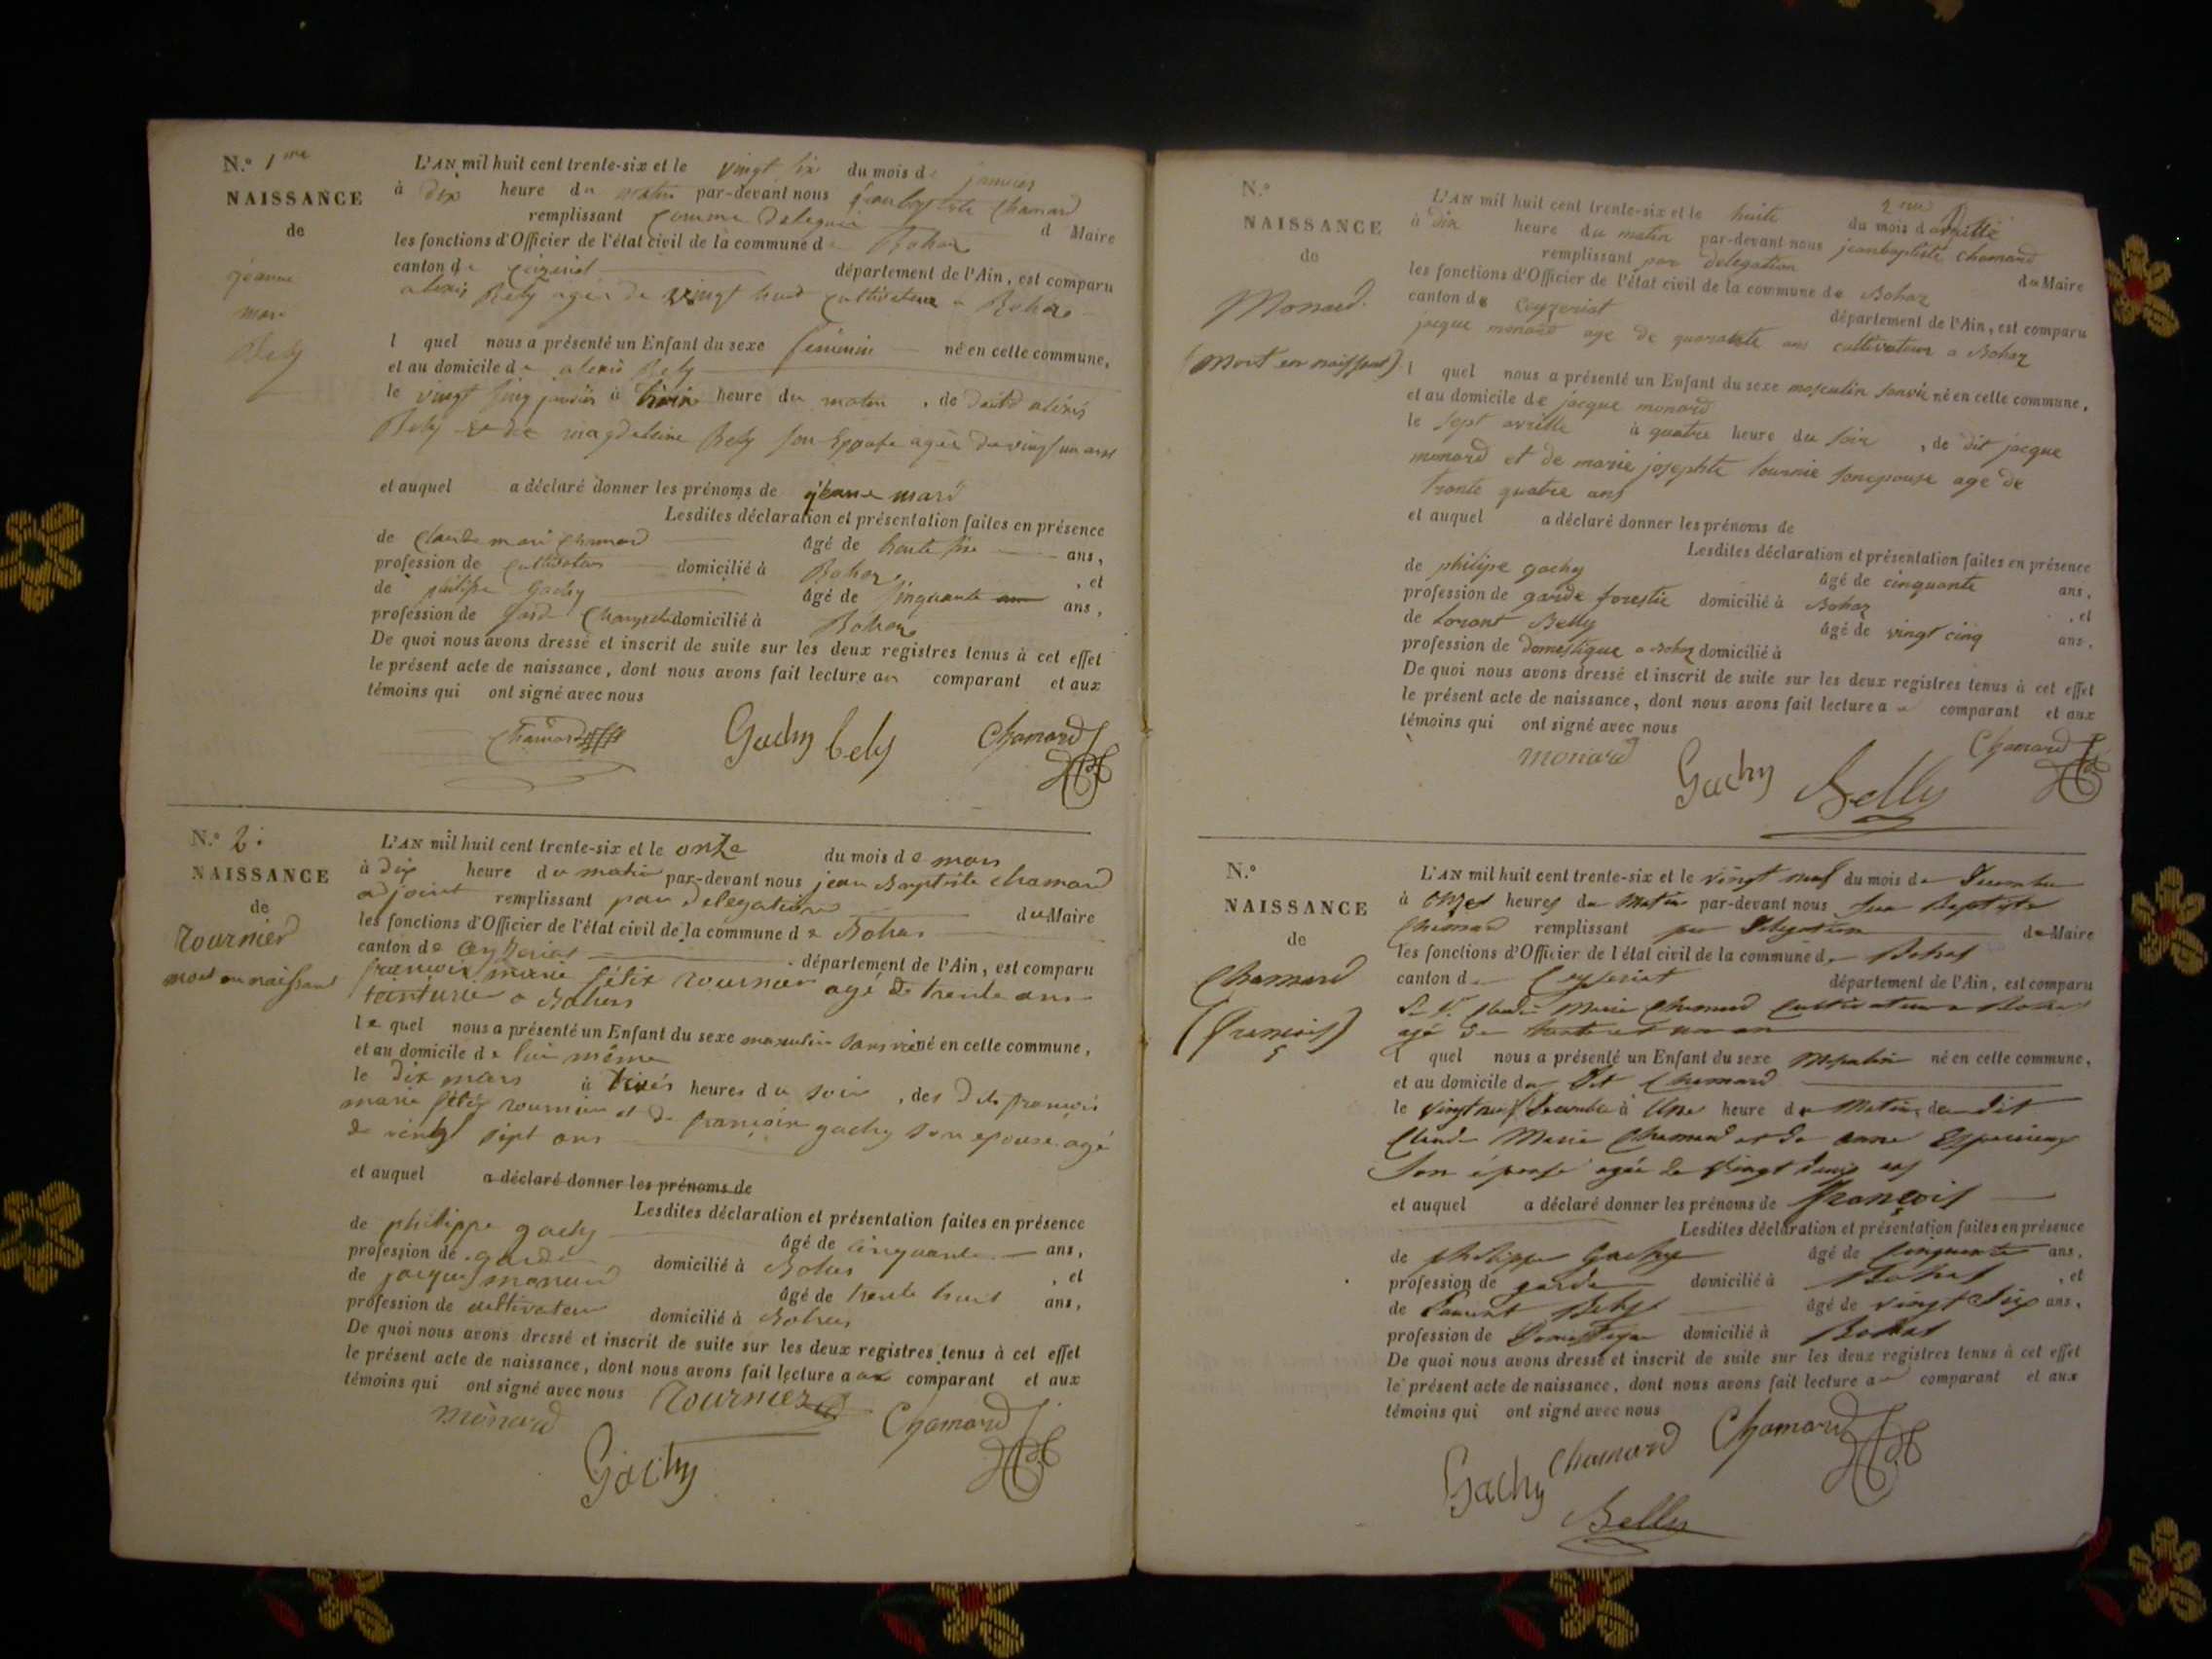 N.° 1re
NAISSANCE
de
jeanne
mari
Bely
L'AN mil huit cent trente-six et le vingt six du mois de janvier
à dix heure du matin par-devant nous jeanbaptiste Chamard
remplissant comme delegué d Maire
les fonctions d'Officier de l'état civil de la commune de Bohaz
canton de département de l'Ain, est comparu
alexis Bely agée de vingt huit cultivateur a Bohaz
l quel nous a présenté un Enfant du sexe feminin né en celle commune,
et au domicile de alexis Bely
le vingt sinq janvier à heure du matin, de dit alexis
Bely et de magdeleine Bely son Eppose agée de vingt un ans
et auquel a déclaré donner les prénoms de jeanne mari
Lesdites déclaration et présentation faites en présence
de Claude mari Chamard âgé de trente ans,
profession de cultivateur domicilié à Bohaz, et
de philipe Gachy âgé de sinquante ans,
profession de gard domicilié à Bohaz
De quoi nous avons dressé et inscrit de suite sur les deux registres tenus à cet effet
le présent acte de naissance, dont nous avons fait lecture au comparant et aux
témoins qui ont signé avec nous
Chamard Gachy bely Chamard
N.° 2.
NAISSANCE
de
tournier
mort en naissant
L'AN mil huit cent trente-six et le onze du mois de mars
à dix heure du matin par-devant nous jean Baptiste chamard
adjoint remplissant par delegation du Maire
les fonctions d'Officier de l'état civil de la commune de Bohas
canton de Ceyzeriat département de l'Ain, est comparu
francois marie félix tournier agé de trente ans
teinturier a Bohas
le quel nous a présenté un Enfant du sexe masculin sans vie né en celle commune,
et au domicile de lui même
le dix mars à heures du soir, des dits francois
marie félix tournier et de francoise gachy son epouse agé
de vingt sept ans
et auquel a déclaré donner les prénoms de
Lesdites déclaration et présentation faites en présence
de philippe gachy âgé de cinquante ans,
profession de garde domicilié à Bohas, et
de jacques monard âgé de trente huit ans,
profession de cultivateur domicilié à Bohas
De quoi nous avons dressé et inscrit de suite sur les deux registres tenus à cet effet
le présent acte de naissance, dont nous avons fait lecture a au comparant et aux
témoins qui ont signé avec nous tournier
monard Gachy Chamard
N.°
NAISSANCE
de
Monard.
(Mort en naissant)
L'AN mil huit cent trente-six et le huite du mois d avrille
à dix heure du matin par-devant nous jeanbaptiste chamard
remplissant par delegation du Maire
les fonctions d'Officier de l'état civil de la commune de Bohaz
canton de Ceyzeriat département de l'Ain, est comparu
jacque monard age de quarante ans cultivateur a Bohaz
l quel nous a présenté un Enfant du sexe masculin sanvie né en celle commune,
et au domicile de jacque monard
le sept avrille à quatre heure du soir, de dit jacque
monard et de marie josephte tournie sonepouse age de
trante quatre ans
et auquel a déclaré donner les prénoms de
Lesdites déclaration et présentation faites en présence
de philipe gachy âgé de cinquante ans,
profession de garde forestie domicilié à Bohaz, et
de Lorant Belly âgé de vingt cinq ans,
profession de Domestique a Bohaz domicilié à
De quoi nous avons dressé et inscrit de suite sur les deux registres tenus à cet effet
le présent acte de naissance, dont nous avons fait lecture a comparant et aux
témoins qui ont signé avec nous
monard Gachy Belly Chamard
N.°
NAISSANCE
de
Chamard
(François)
L'AN mil huit cent trente-six et le vingt neuf du mois de Decembre
à onzes heures du Matin par-devant nous Jean Baptiste
Chamard remplissant par Delegation du Maire
les fonctions d'Officier de l'état civil de la commune de Bohas
canton de Ceyzeriat département de l'Ain, est comparu
Claude Marie Chamard Cultivateur a Bohas
agé de trente et un an
l quel nous a présenté un Enfant du sexe Masculin né en celle commune,
et au domicile du dit Chamard
le vingt neuf Decembre à Une heure du Matin, du dit
Claude Marie Chamard et de anne
Son épouse agée de Vingt ans
et auquel a déclaré donner les prénoms de François
Lesdites déclaration et présentation faites en présence
de Philippe Gachy âgé de Cinquante ans,
profession de garde domicilié à Bohas, et
de Laurent Bely âgé de vingt Six ans,
profession de Domestique domicilié à Bohas
De quoi nous avons dressé et inscrit de suite sur les deux registres tenus à cet effet
le présent acte de naissance, dont nous avons fait lecture a comparant et aux
témoins qui ont signé avec nous
Gachy Chamard Chamard
Belly